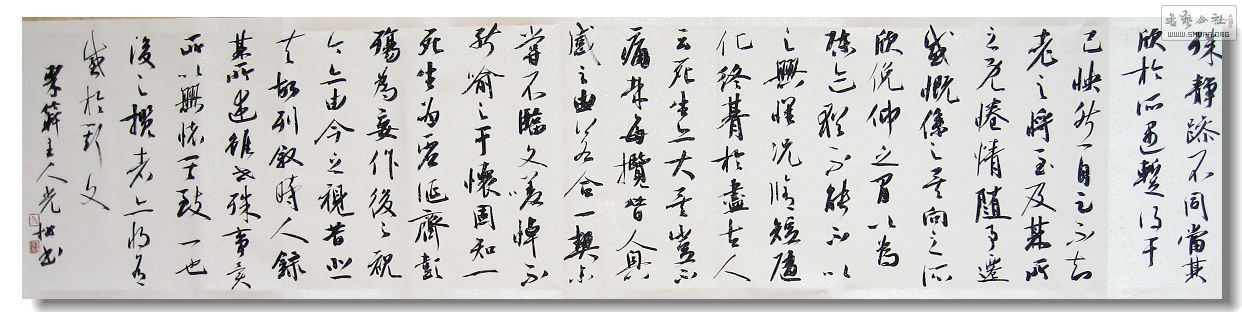 書藝公社
WWW.SHUFA.ORG
殊静躁不同當其
欣於所遇暫得于
己快然自足不知
老之將至及其所
之既惓情随事遷
感慨係之矣向之所
欣俛仰之間以為
陳迹猶不能不以
之興懷况脩短随
化終期於盡古人
云死生亦大矣豈不
痛哉每攬昔人興
感之由若合一契未
嘗不臨文嗟悼不
能喻之于懷固知一
死生為虛誕齊彭
殤為妄作後之視
今亦由今之視昔悲
夫故列叙時人錄
其所述雖世殊事異
所以興懷其致一也
後之攬者亦將有
感於斯文
主人光書